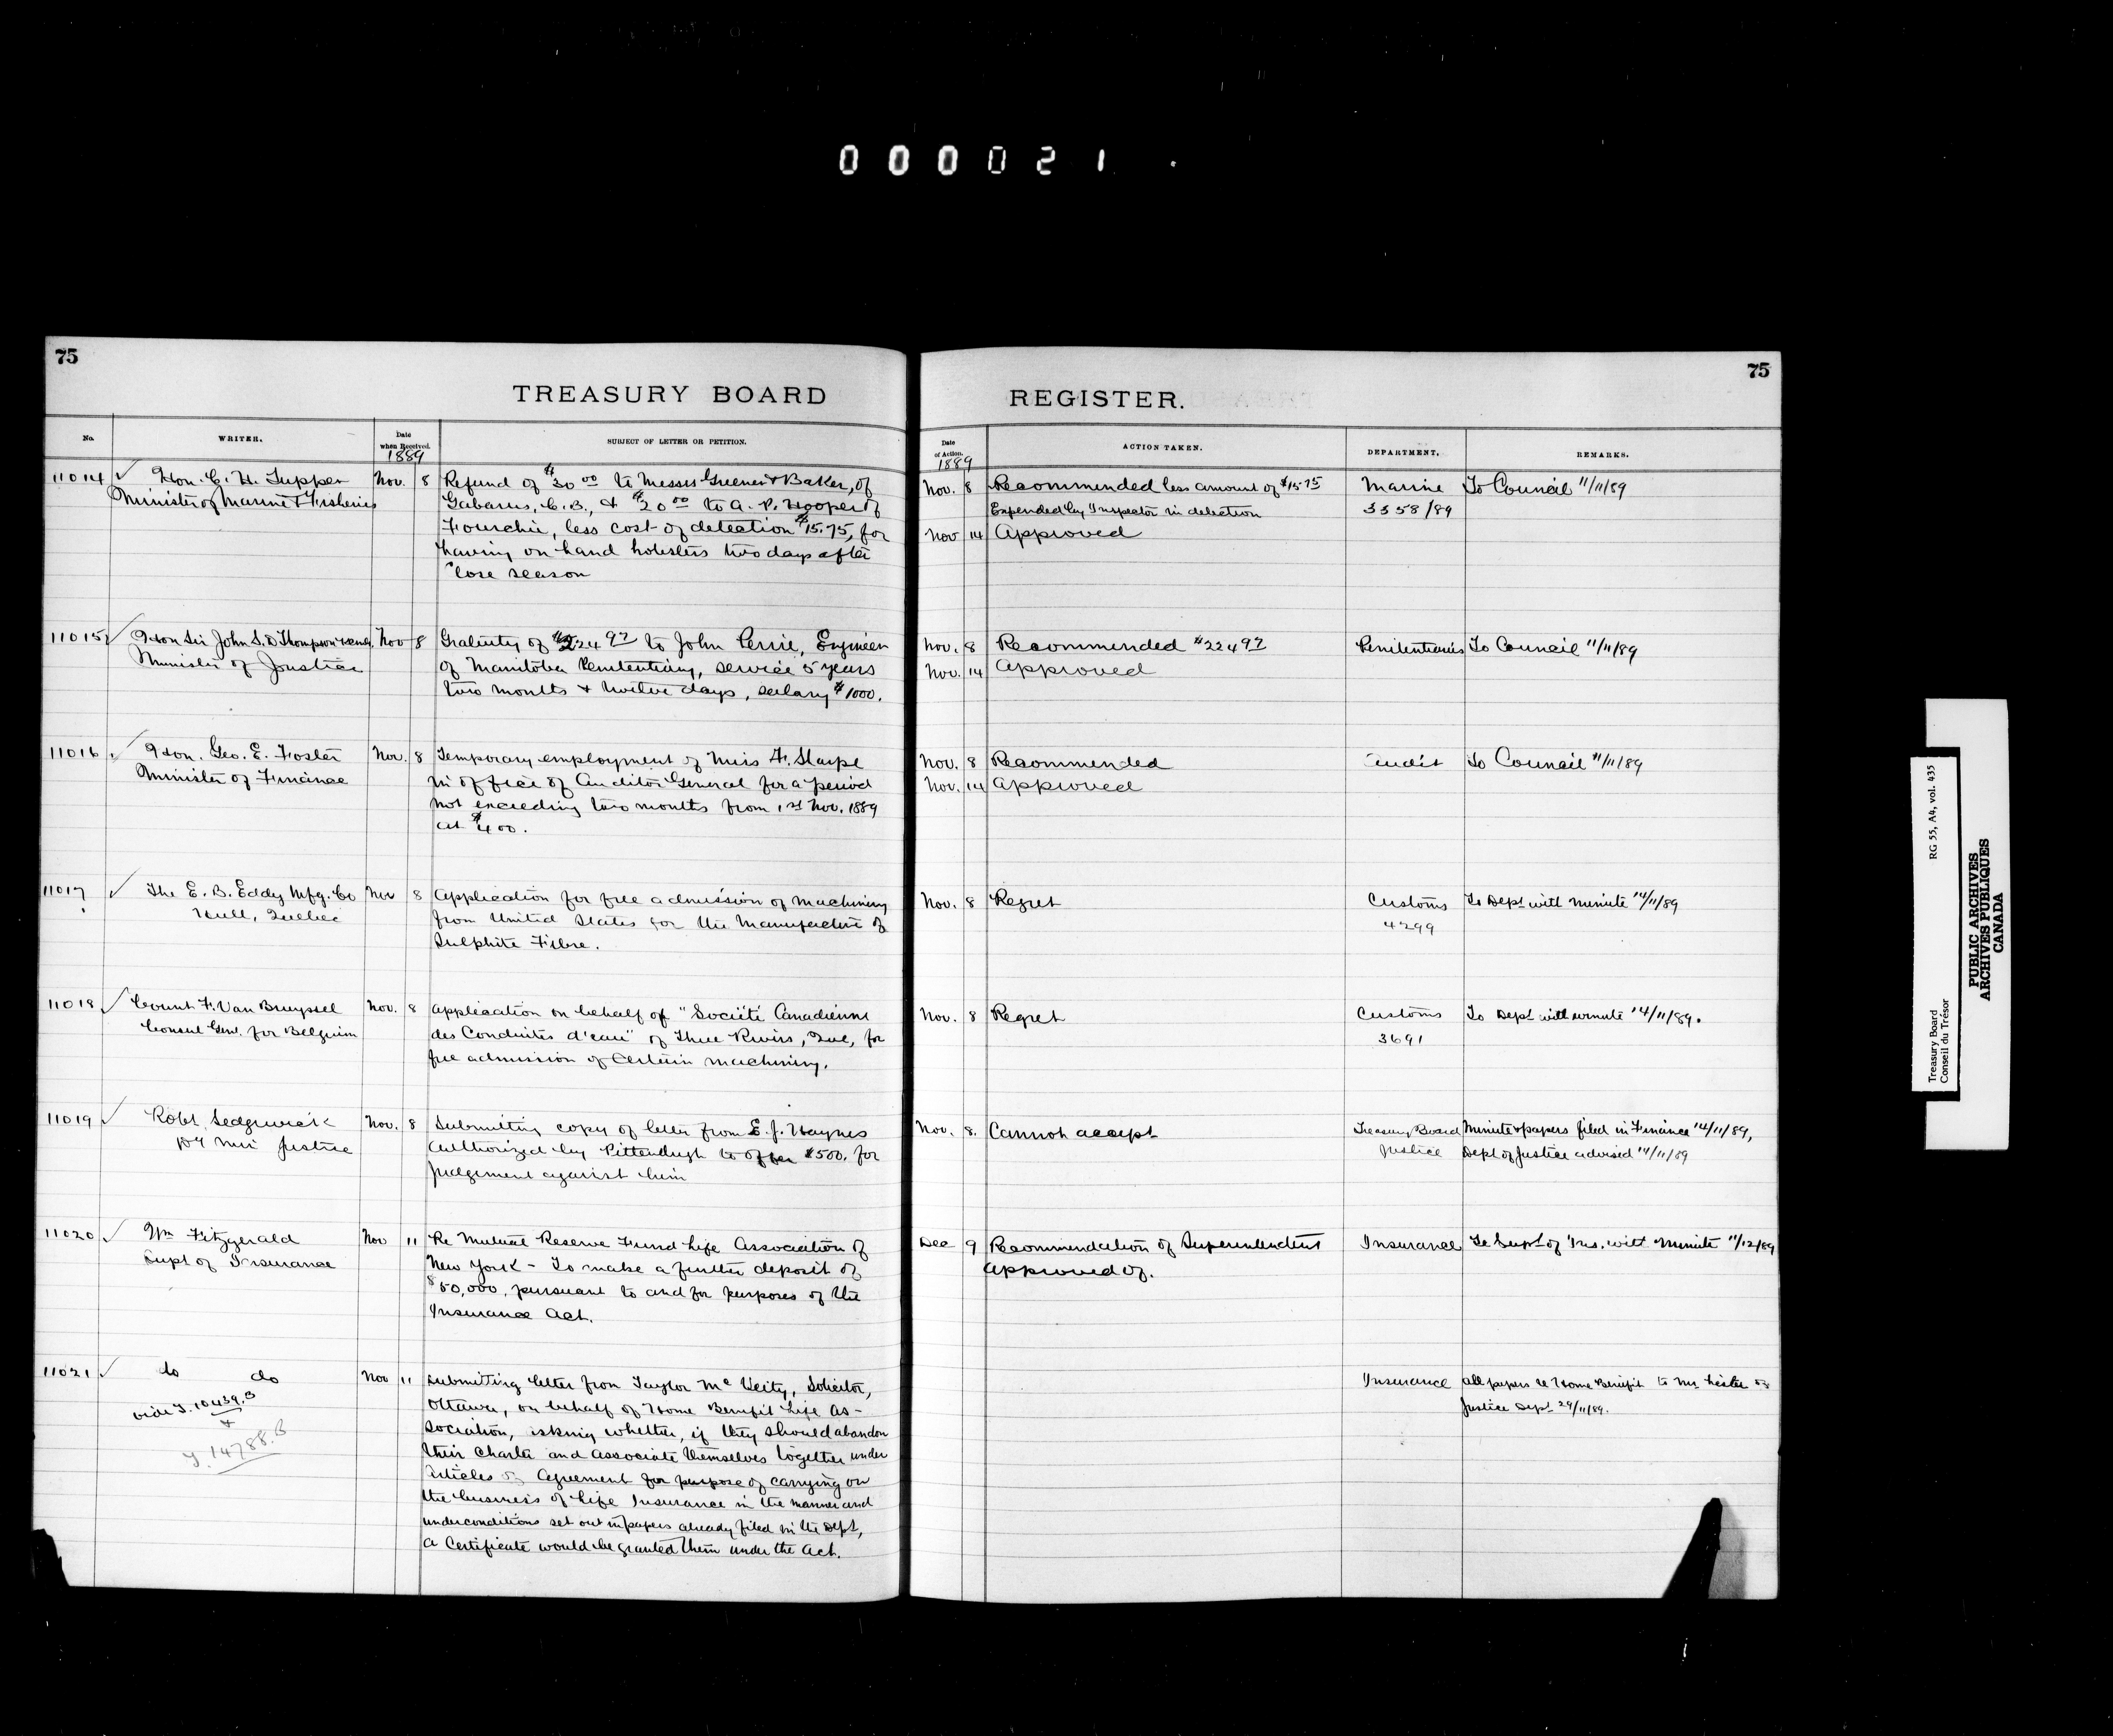 000021
75
TREASURY BOARD
No.
WRITER.
Date
when Received.
1889
SUBJECT OF LETTER OR PETITION.
11014 ✓ Hon. C. H. Tupper
Minister of Marine & Fisheries
Nov. 8
Refund of $30 00 to Messrs Greener & Baker, of
Gabarus, C.B., & $20 00 to A. P. Hooper of
Fourchie, less cost of detection $15.75, for
having on hand lobsters two days after
close season
11015 ✓ Hon Sir John S. D. Thompson
Minister of Justice
Nov 8
Gratuity of $224 97 to John Perrie, Engineer
of Manitoba Penitentiary, service 5 years
two months & twelve days, salary $1000.
11016 ✓ Hon. Geo. E. Foster
Minister of Finance
Nov. 8
Temporary employment of Miss F. Sharpe
in office of Auditor General for a period
not exceeding two months from 1st Nov. 1889
at $400.
11017 ✓ The E. B. Eddy Mfg. Co
Hull, Quebec
Nov 8
Application for free admission of machinery
from United States for the manufacture of
Sulphite Fibre.
11018 ✓ Count F. Van Bruyssel
Consul Genl. for Belgium
Nov. 8
Application on behalf of "Société Canadienne
des Conduites d'eau" of Three Rivers, Que, for
free admission of certain machinery.
11019 ✓ Robt. Sedgewick
Dy Min Justice
Nov. 8
Submitting copy of letter from E. J. Haynes
authorized by Pittendrigh to offer $500. for
judgement against him
11020 ✓ Wm Fitzgerald
Supt of Insurance
Nov 11
Re Mutual Reserve Fund Life Association of
New York - To make a further deposit of
$50,000, pursuant to and for purposes of the
Insurance Act.
11021 ✓ do do
vide T. 10439.B
&
T. 14788.B
Nov 11
Submitting letter from Taylor McVeity, Solicitor,
Ottawa, on behalf of Home Benefit Life As-
sociation, asking whether, if they should abandon
their charter and associate themselves together under
Articles of Agreement for purpose of carrying on
the business of Life Insurance in the manner and
under conditions set out in papers already filed in the Dept,
a Certificate would be granted them under the Act.
75
REGISTER.
Date
of Action.
1889
ACTION TAKEN.
DEPARTMENT.
REMARKS.
Nov. 8 Recommended less amount of $15.75
Expended by Inspector in detection
Nov 14 Approved
Marine
3358/89
To Council 11/11/89
Nov. 8 Recommended $224 97
Nov. 14 Approved
Penitentiaries
To Council 11/11/89
Nov. 8 Recommended
Nov. 14 Approved
Audit
To Council 11/11/89
Nov. 8 Regret
Customs
4299
To Dept with minute 14/11/89
Nov. 8 Regret
Customs
3691
To Dept with minute 14/11/89.
Nov. 8. Cannot accept
Treasury Board
Justice
Minute & papers filed in Finance 14/11/89,
Dept of Justice advised 14/11/89
Dec 9 Recommendation of Superintendent
approved of.
Insurance
To Supt of Ins. with minute 11/12/89
Insurance
All papers re Home Benefit to Mr. Leslie of
Justice Dept 29/11/89.
Treasury Board
Conseil du Trésor
RG 55, A4, vol. 435
PUBLIC ARCHIVES
ARCHIVES PUBLIQUES
CANADA